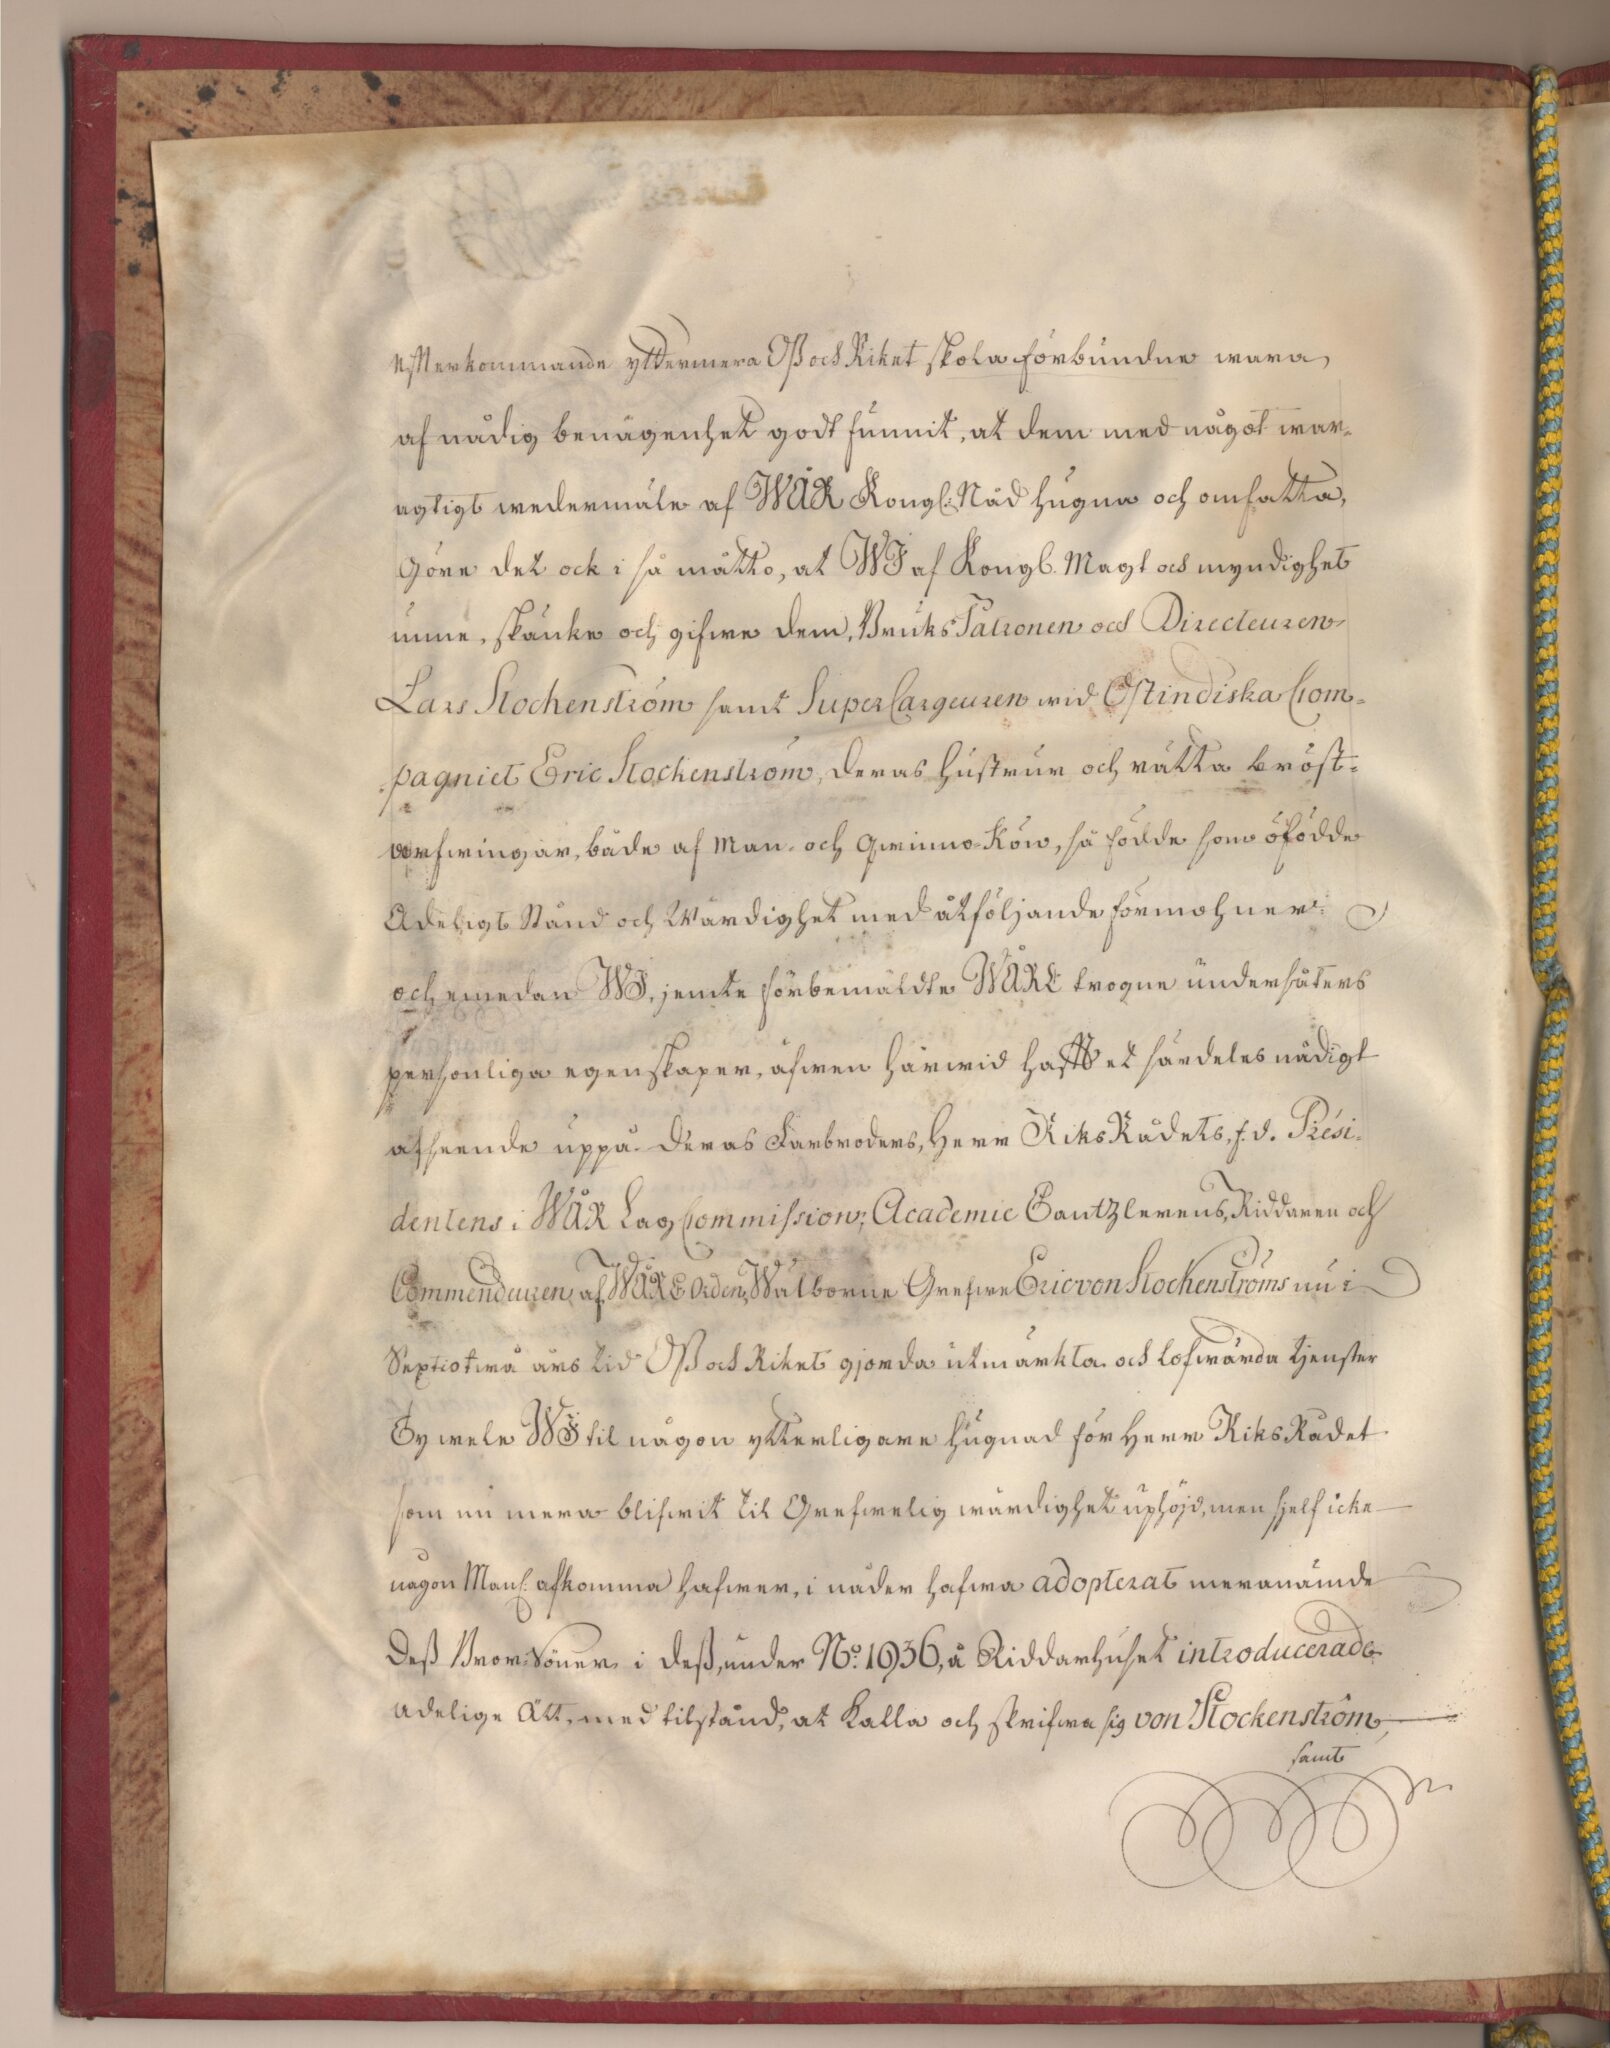 effterkommande yttermera Oß och Riket skola förbundne wara,
af nådig benägenhet godt funnit, at dem med något war-
agtigt wedermäle af WÅR Kongl: Nåd hugna och omfatta,
Göre det ock i så matto, at WJ af Kongl. Magt och myndighet
unne, skänke och gifwe dem, Bruks Patronen och Directeuren
Lars Stockenström samt SuperCargeuren wid Ostindiska Com-
pagniet Eric Stockenström, deras hustrur och rätta bröst-
arfwingar, både af Man- och Qwinno-Kön, så födde som ofödde
Adeligt Stånd och Wärdighet med åtföljande förmohner:
och emedan WJ, jemte förbemäldte WÅRE trogne undersåters
personliga egenskaper, äfwen härwid haft et särdeles nådigt
afseende uppå deras Farbroders, Herr RiksRådets, f. d. Presi-
dentens i WÅR LagCommission, Academie Cantzlerens, Riddaren och
Commendeuren af WÅRE Orden, Wälborne Grefwe Eric von Stockenströms nu i
Sextiotwå års tid Oß och Riket gjorda utmärkta och lofwärda tjenster
Ty wele WJ til någon ytterligare hugnad för Herr RiksRådet
som nu mera blifwit til Grefwelig wärdighet uphöjd, men sjelf icke
någon Manl: afkomma hafwer, i nåder hafwa adopterat meranämde
Deß Bror-Söner i deß, under N:o 1936, å Riddarhuset introducerade
adelige Ätt, med tilstånd, at kalla och skrifwa sig von Stockenström,
samt